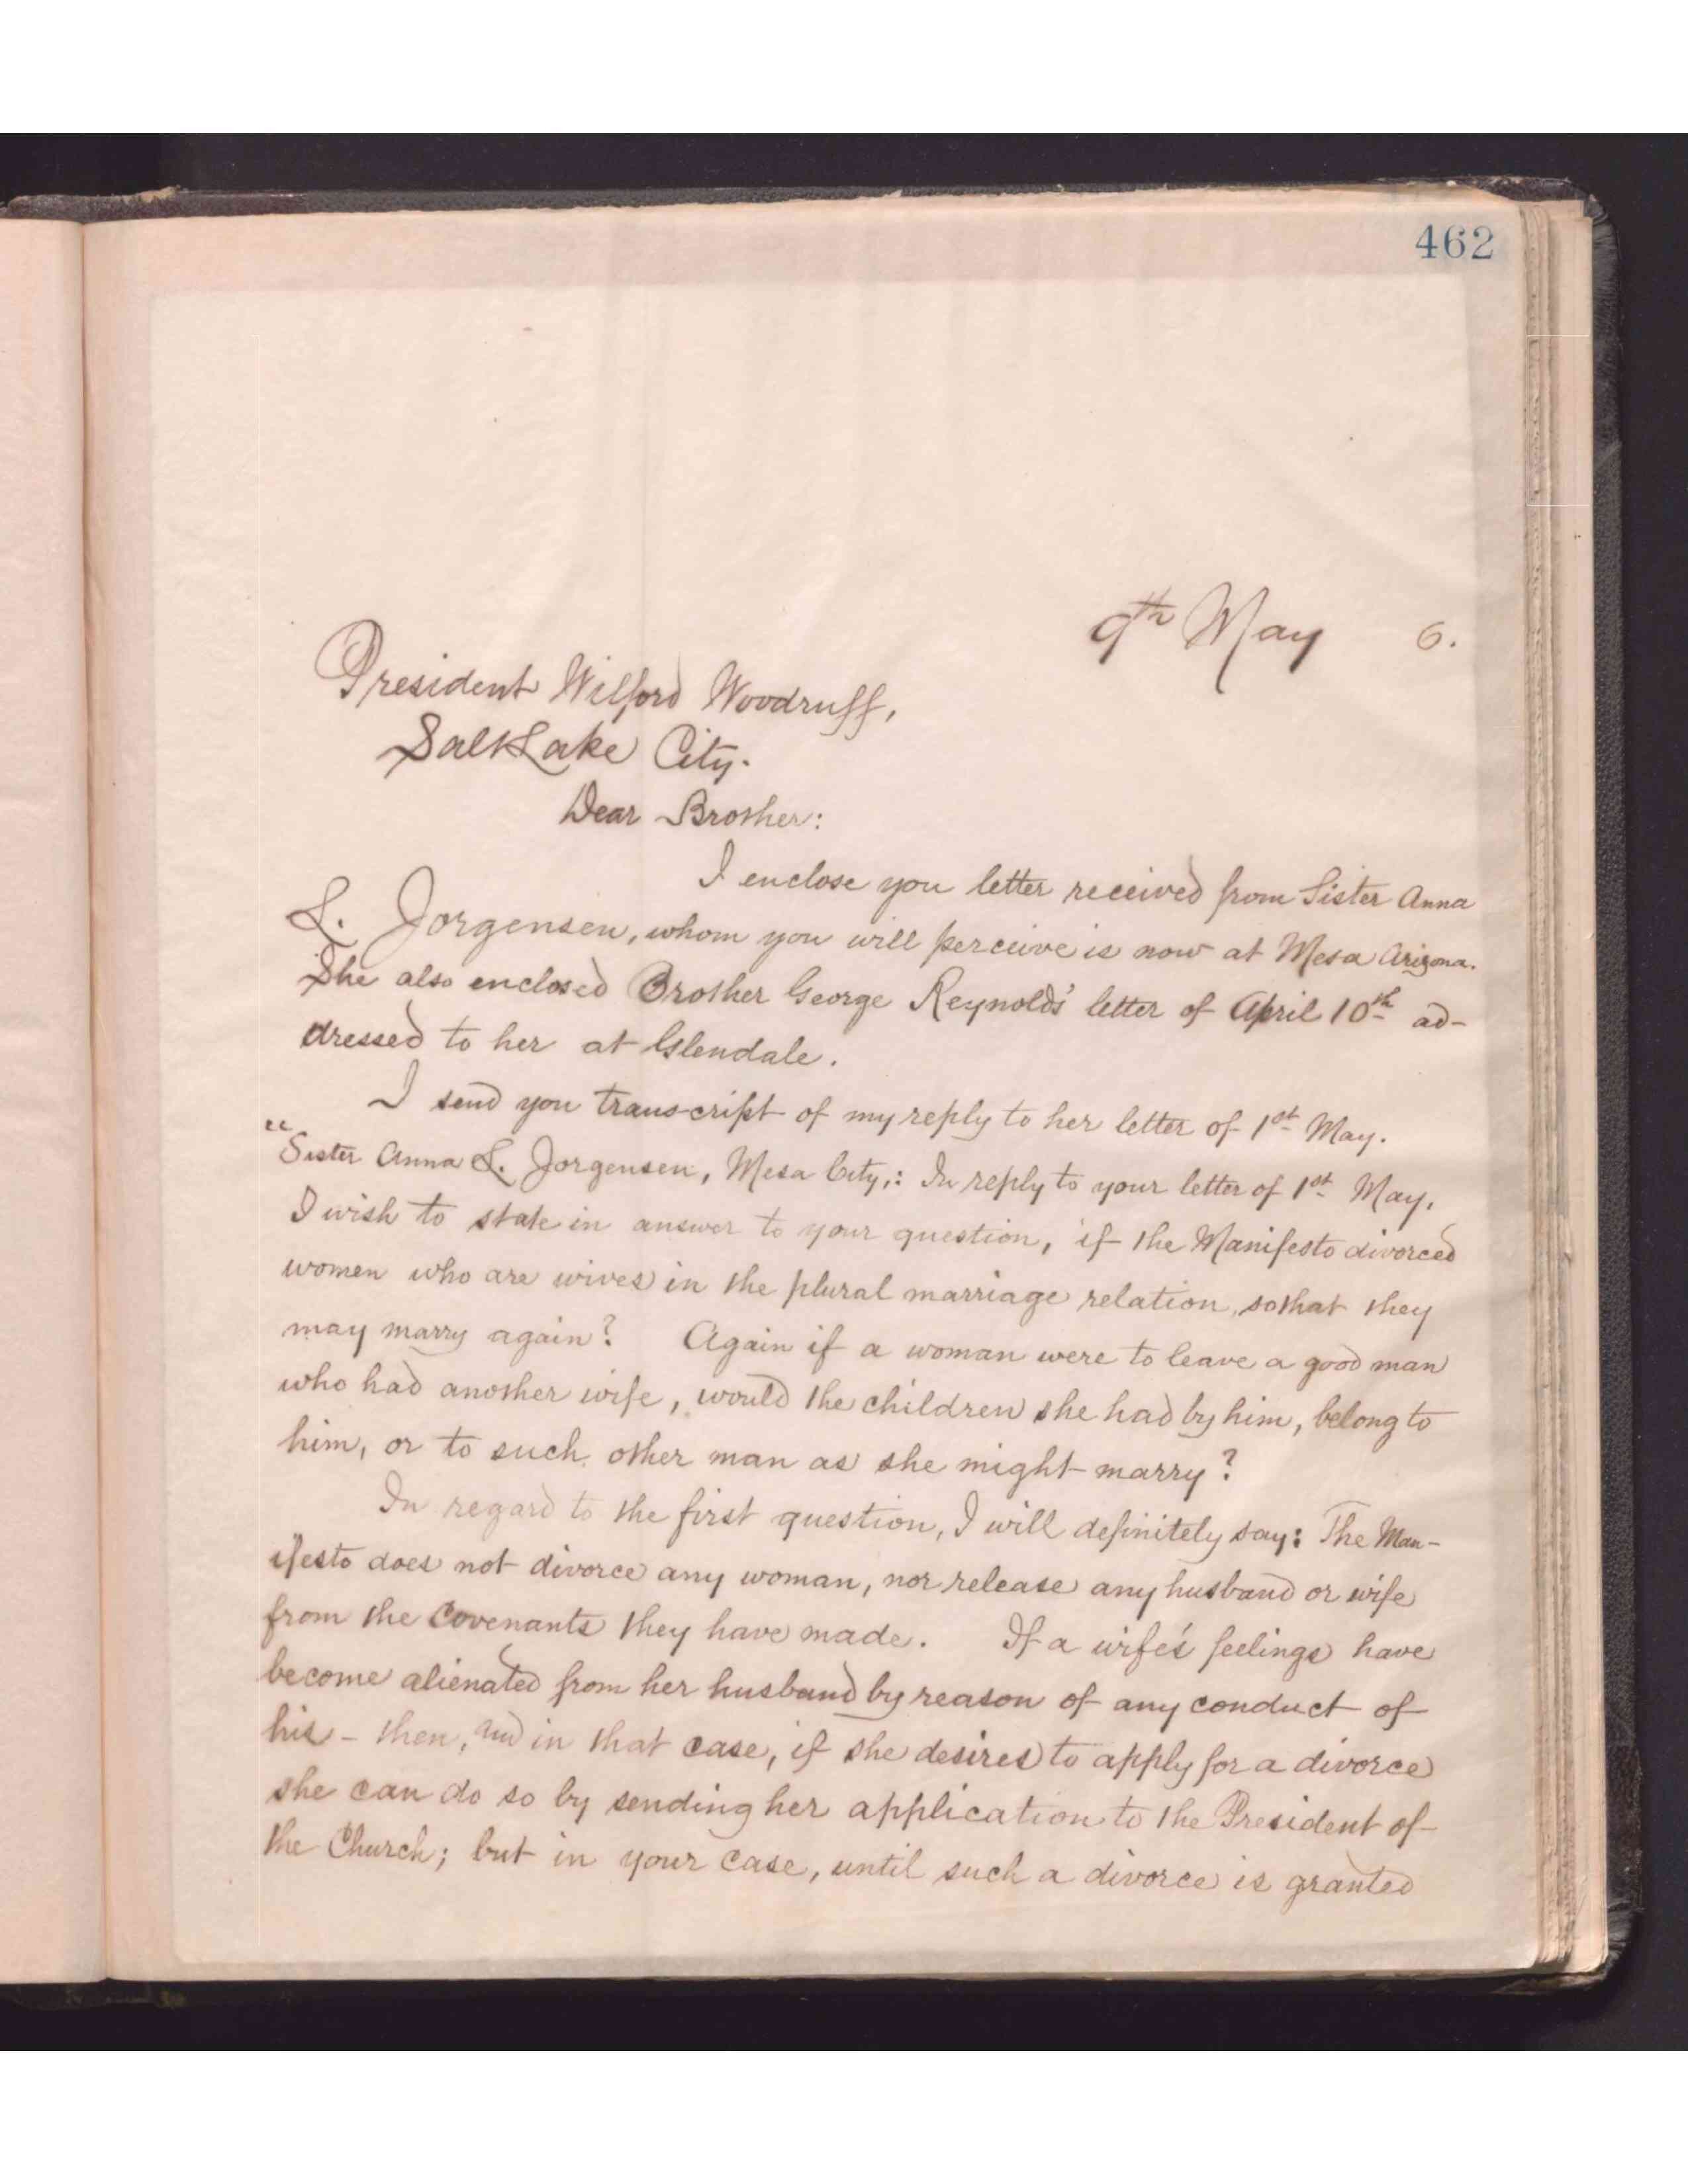 462
9th May 6.
President Wilford Woodruff,
Salt Lake City.
Dear Brother:
I enclose you letter received from Sister Anna
L. Jorgensen, whom you will perceive is now at Mesa Arizona.
She also enclosed Brother George Reynolds' letter of April 10th ad-
dressed to her at Glendale.
I send you transcript of my reply to her letter of 1st May.
"Sister Anna L. Jorgensen, Mesa City,: In reply to your letter of 1st May,
I wish to state in answer to your question, if the Manifesto divorced
women who are wives in the plural marriage relation, so that they
may marry again? Again if a woman were to leave a good man
who had another wife, would the children she had by him, belong to
him, or to such other man as she might marry?
In regard to the first question, I will definitely say: The Man-
ifesto does not divorce any woman, nor release any husband or wife
from the Covenants they have made. If a wife's feelings have
become alienated from her husband by reason of any conduct of
his - then, and in that case, if she desires to apply for a divorce
she can do so by sending her application to the President of
the Church; but in your case, until such a divorce is granted